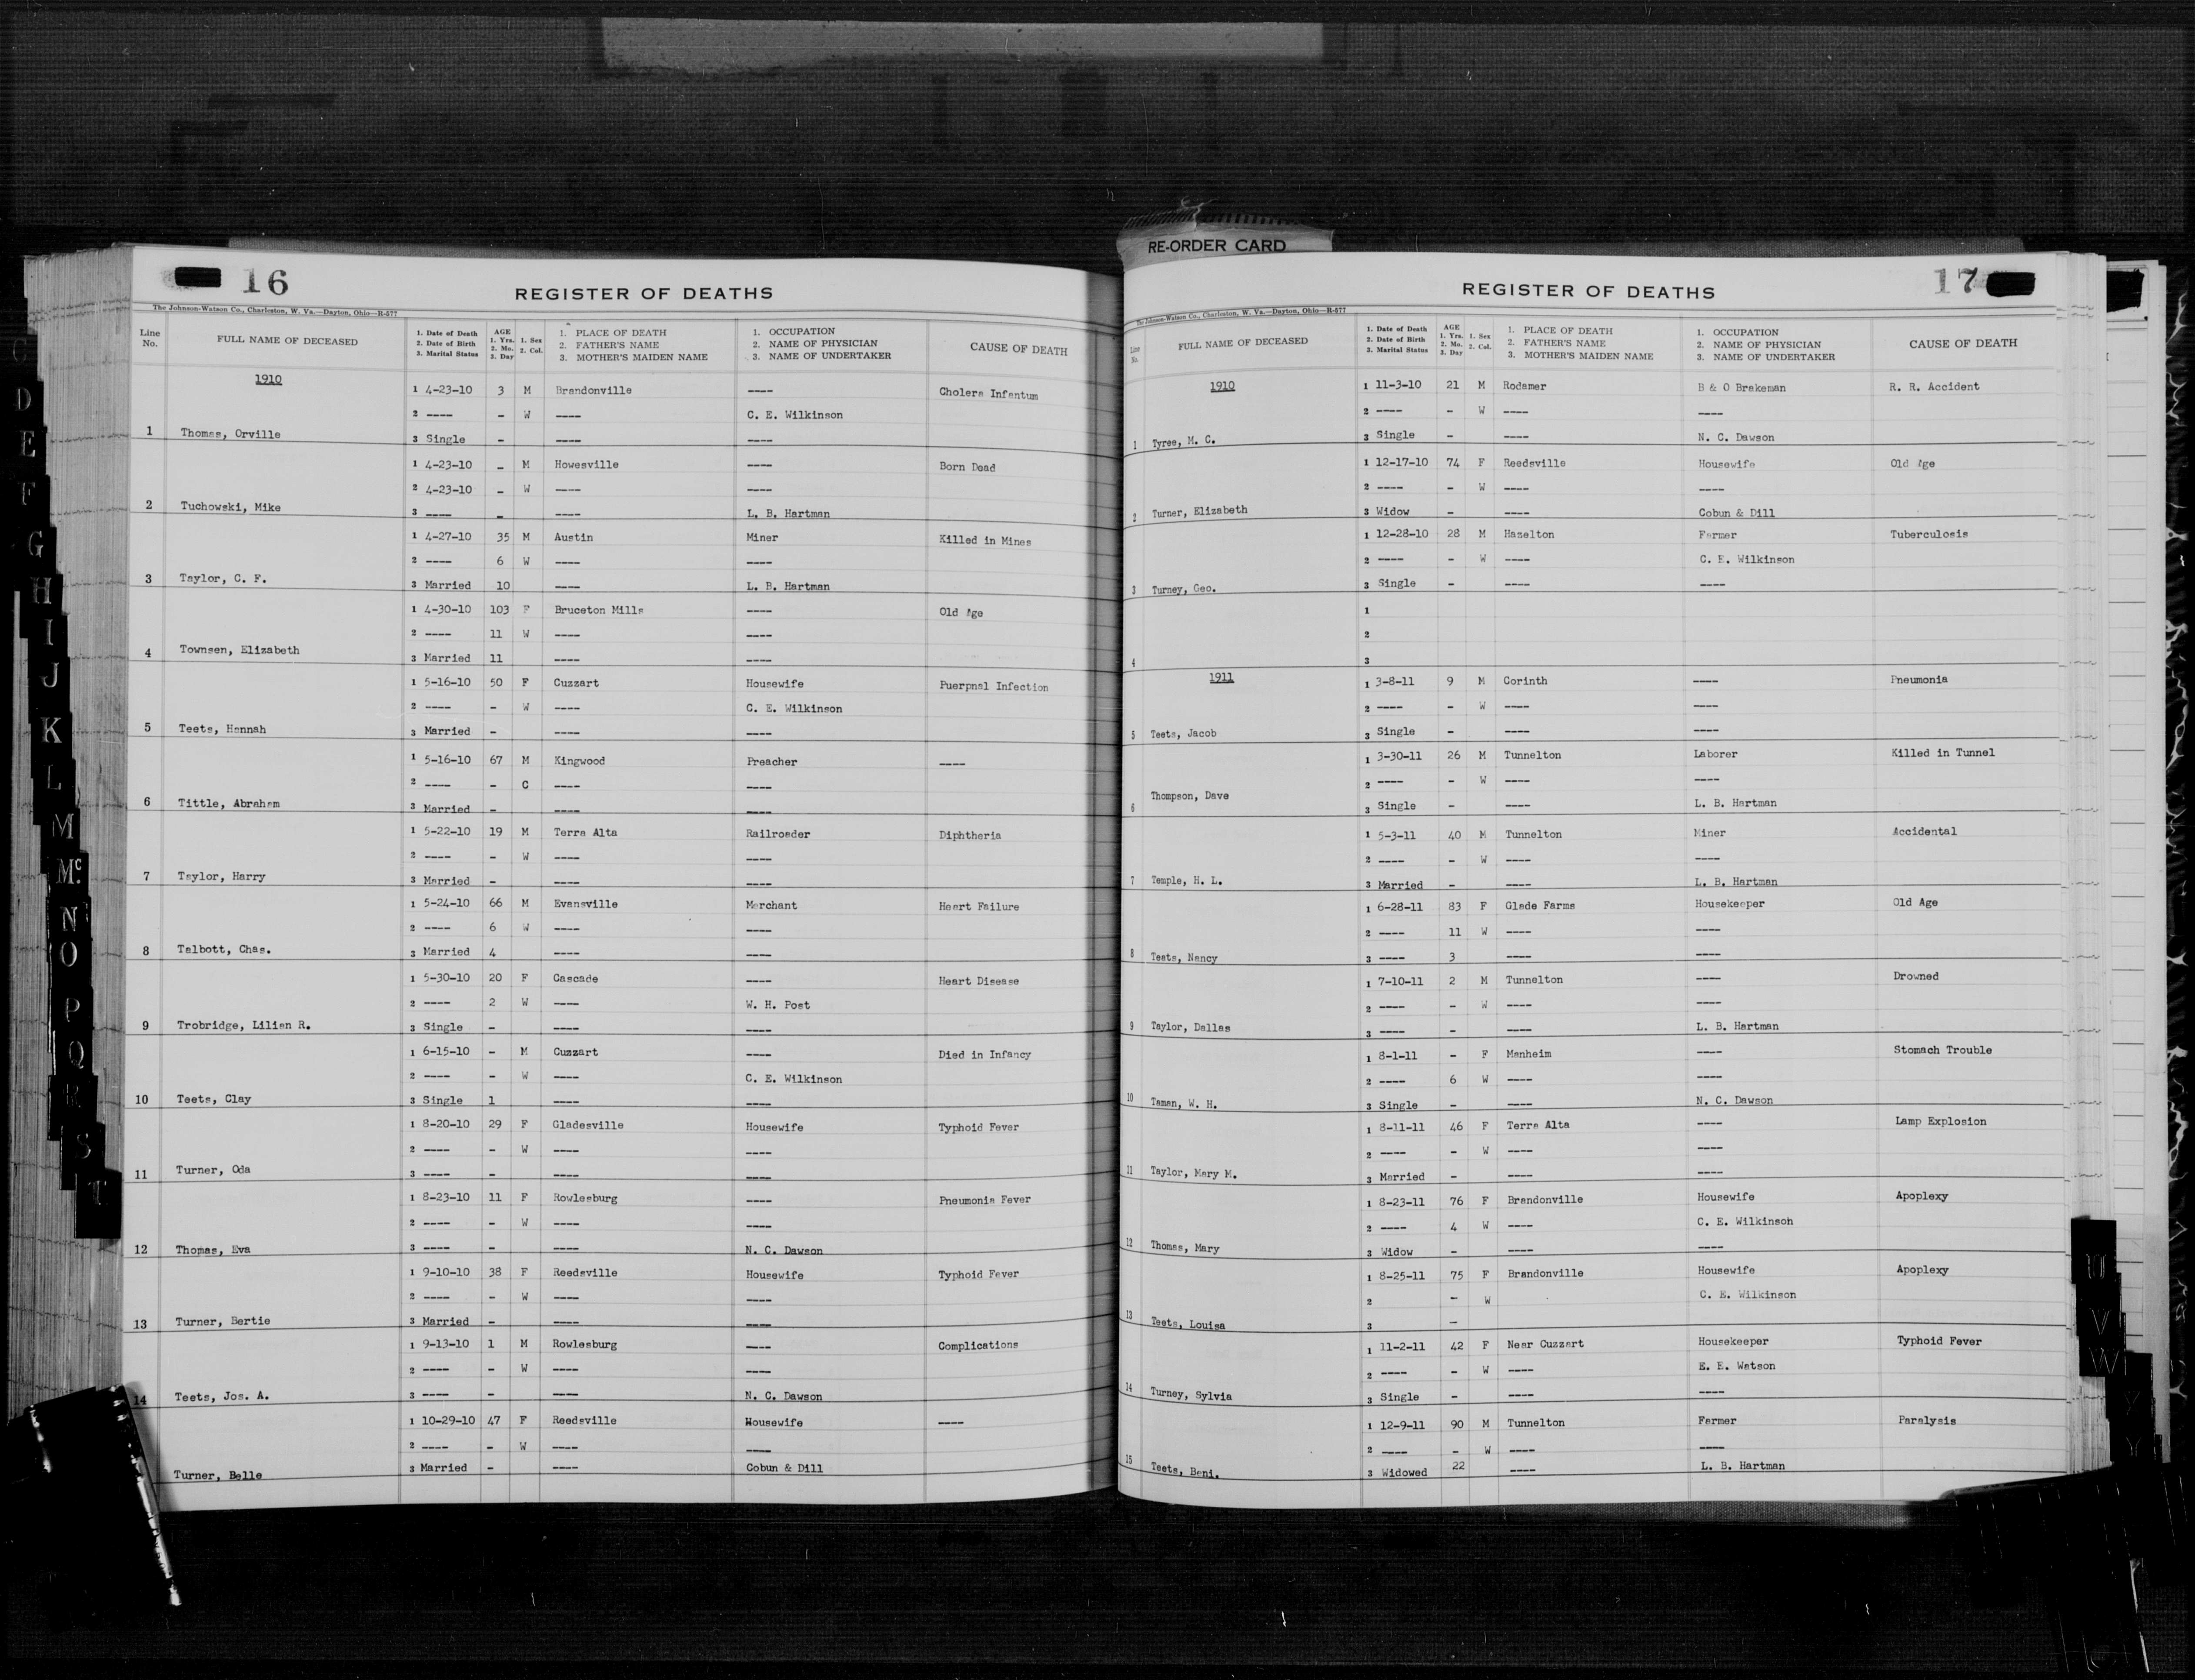 RE-ORDER CARD
16
REGISTER OF DEATHS
The Johnson-Watson Co., Charleston, W. Va.—Dayton, Ohio—R-577
Line No. FULL NAME OF DECEASED 1. Date of Death 2. Date of Birth 3. Marital Status AGE 1. Yrs. 2. Mo. 3. Day 1. Sex 2. Col. 1. PLACE OF DEATH 2. FATHER'S NAME 3. MOTHER'S MAIDEN NAME 1. OCCUPATION 2. NAME OF PHYSICIAN 3. NAME OF UNDERTAKER CAUSE OF DEATH
1910
1 4-23-10 3 M Brandonville ---- Cholera Infantum
2 ---- - W ---- C. E. Wilkinson
1 Thomas, Orville 3 Single - ---- ----
1 4-23-10 - M Howesville ---- Born Dead
2 4-23-10 - W ---- ----
2 Tuchowski, Mike 3 ---- - ---- L. B. Hartman
1 4-27-10 35 M Austin Miner Killed in Mines
2 ---- 6 W ---- ----
3 Taylor, C. F. 3 Married 10 ---- L. B. Hartman
1 4-30-10 103 F Bruceton Mills ---- Old Age
2 ---- 11 W ---- ----
4 Townsen, Elizabeth 3 Married 11 ---- ----
1 5-16-10 50 F Cuzzart Housewife Puerpnal Infection
2 ---- - W ---- C. E. Wilkinson
5 Teets, Hannah 3 Married - ---- ----
1 5-16-10 67 M Kingwood Preacher ----
2 ---- - C ---- ----
6 Tittle, Abraham 3 Married - ---- ----
1 5-22-10 19 M Terra Alta Railroader Diphtheria
2 ---- - W ---- ----
7 Taylor, Harry 3 Married - ---- ----
1 5-24-10 66 M Evansville Merchant Heart Failure
2 ---- 6 W ---- ----
8 Talbott, Chas. 3 Married 4 ---- ----
1 5-30-10 20 F Cascade ---- Heart Disease
2 ---- 2 W ---- W. H. Post
9 Trobridge, Lilian R. 3 Single - ---- ----
1 6-15-10 - M Cuzzart ---- Died in Infancy
2 ---- - W ---- C. E. Wilkinson
10 Teets, Clay 3 Single 1 ---- ----
1 8-20-10 29 F Gladesville Housewife Typhoid Fever
2 ---- - W ---- ----
11 Turner, Oda 3 ---- - ---- ----
1 8-23-10 11 F Rowlesburg ---- Pneumonia Fever
2 ---- - W ---- ----
12 Thomas, Eva 3 ---- - ---- N. C. Dawson
1 9-10-10 38 F Reedsville Housewife Typhoid Fever
2 ---- - W ---- ----
13 Turner, Bertie 3 Married - ---- ----
1 9-13-10 1 M Rowlesburg ---- Complications
2 ---- - W ---- ----
14 Teets, Jos. A. 3 ---- - ---- N. C. Dawson
1 10-29-10 47 F Reedsville Housewife ----
2 ---- - W ---- ----
Turner, Belle 3 Married - ---- Cobun & Dill
17
REGISTER OF DEATHS
The Johnson-Watson Co., Charleston, W. Va.—Dayton, Ohio—R-577
Line No. FULL NAME OF DECEASED 1. Date of Death 2. Date of Birth 3. Marital Status AGE 1. Yrs. 2. Mo. 3. Day 1. Sex 2. Col. 1. PLACE OF DEATH 2. FATHER'S NAME 3. MOTHER'S MAIDEN NAME 1. OCCUPATION 2. NAME OF PHYSICIAN 3. NAME OF UNDERTAKER CAUSE OF DEATH
1910
1 11-3-10 21 M Rodamer B & O Brakeman R. R. Accident
2 ---- - W ---- ----
1 Tyree, M. C. 3 Single - ---- N. C. Dawson
1 12-17-10 74 F Reedsville Housewife Old Age
2 ---- - W ---- ----
2 Turner, Elizabeth 3 Widow - ---- Cobun & Dill
1 12-28-10 28 M Hazelton Farmer Tuberculosis
2 ---- - W ---- C. E. Wilkinson
3 Turney, Geo. 3 Single - ---- ----
1
2
4 3
1911
1 3-8-11 9 M Corinth ---- Pneumonia
2 ---- - W ---- ----
5 Teets, Jacob 3 Single - ---- ----
1 3-30-11 26 M Tunnelton Laborer Killed in Tunnel
2 ---- - W ---- ----
6 Thompson, Dave 3 Single - ---- L. B. Hartman
1 5-3-11 40 M Tunnelton Miner Accidental
2 ---- - W ---- ----
7 Temple, H. L. 3 Married - ---- L. B. Hartman
1 6-28-11 83 F Glade Farms Housekeeper Old Age
2 ---- 11 W ---- ----
8 Teets, Nancy 3 ---- 3 ---- ----
1 7-10-11 2 M Tunnelton ---- Drowned
2 ---- - W ---- ----
9 Taylor, Dallas 3 ---- - ---- L. B. Hartman
1 8-1-11 - F Manheim ---- Stomach Trouble
2 ---- 6 W ---- ----
10 Taman, W. H. 3 Single - ---- N. C. Dawson
1 8-11-11 46 F Terra Alta ---- Lamp Explosion
2 ---- - W ---- ----
11 Taylor, Mary M. 3 Married - ---- ----
1 8-23-11 76 F Brandonville Housewife Apoplexy
2 ---- 4 W ---- C. E. Wilkinson
12 Thomas, Mary 3 Widow - ---- ----
1 8-25-11 75 F Brandonville Housewife Apoplexy
2 - W C. E. Wilkinson
13 Teets, Louisa 3 -
1 11-2-11 42 F Near Cuzzart Housekeeper Typhoid Fever
2 ---- - W ---- E. E. Watson
14 Turney, Sylvia 3 Single - ---- ----
1 12-9-11 90 M Tunnelton Farmer Paralysis
2 ---- - W ---- ----
15 Teets, Benj. 3 Widowed 22 ---- L. B. Hartman
C
D
E
F
G
H
I
J
K
L
M
Mc
N
O
P
Q
R
S
T
U
V
W
X
Y